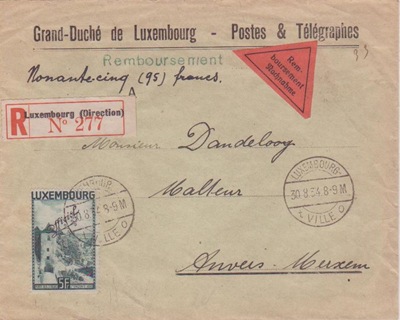 Grand-Duché de Luxembourg - Postes & Télégraphes
Remboursement
Rem-
boursement
Nachnahme
Nonante-cinq (95) francs.
Luxembourg (Direction)
R No 277
Monsieur Dandelooy
Malteur
Anvers-Merxem
LUXEMBOURG-
30.8.34.8-9M
VILLE
LUXEMBOURG
30.8.34.8-9M
VILLE
5F